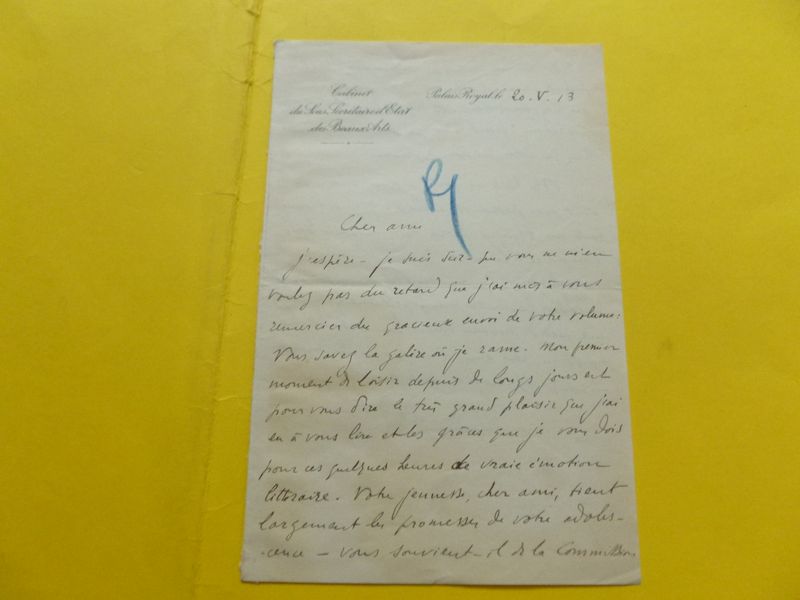 Cabinet
du Sous Secrétaire d'Etat
des Beaux Arts
Palais Royal, le 20.V.13
R
Cher ami
J'espère - je suis sûr - que vous ne m'en
voulez pas du retard que j'ai mis à vous
remercier du gracieux envoi de votre volume:
Vous savez la galère où je rame. Mon premier
moment de loisir depuis de longs jours est
pour vous dire le très grand plaisir que j'ai
eu à vous lire et les grâces que je vous dois
pour ces quelques heures de vraie émotion
littéraire. Votre jeunesse, cher ami, tient
largement les promesses de votre adoles-
-cence - vous souvient-il de la Commission